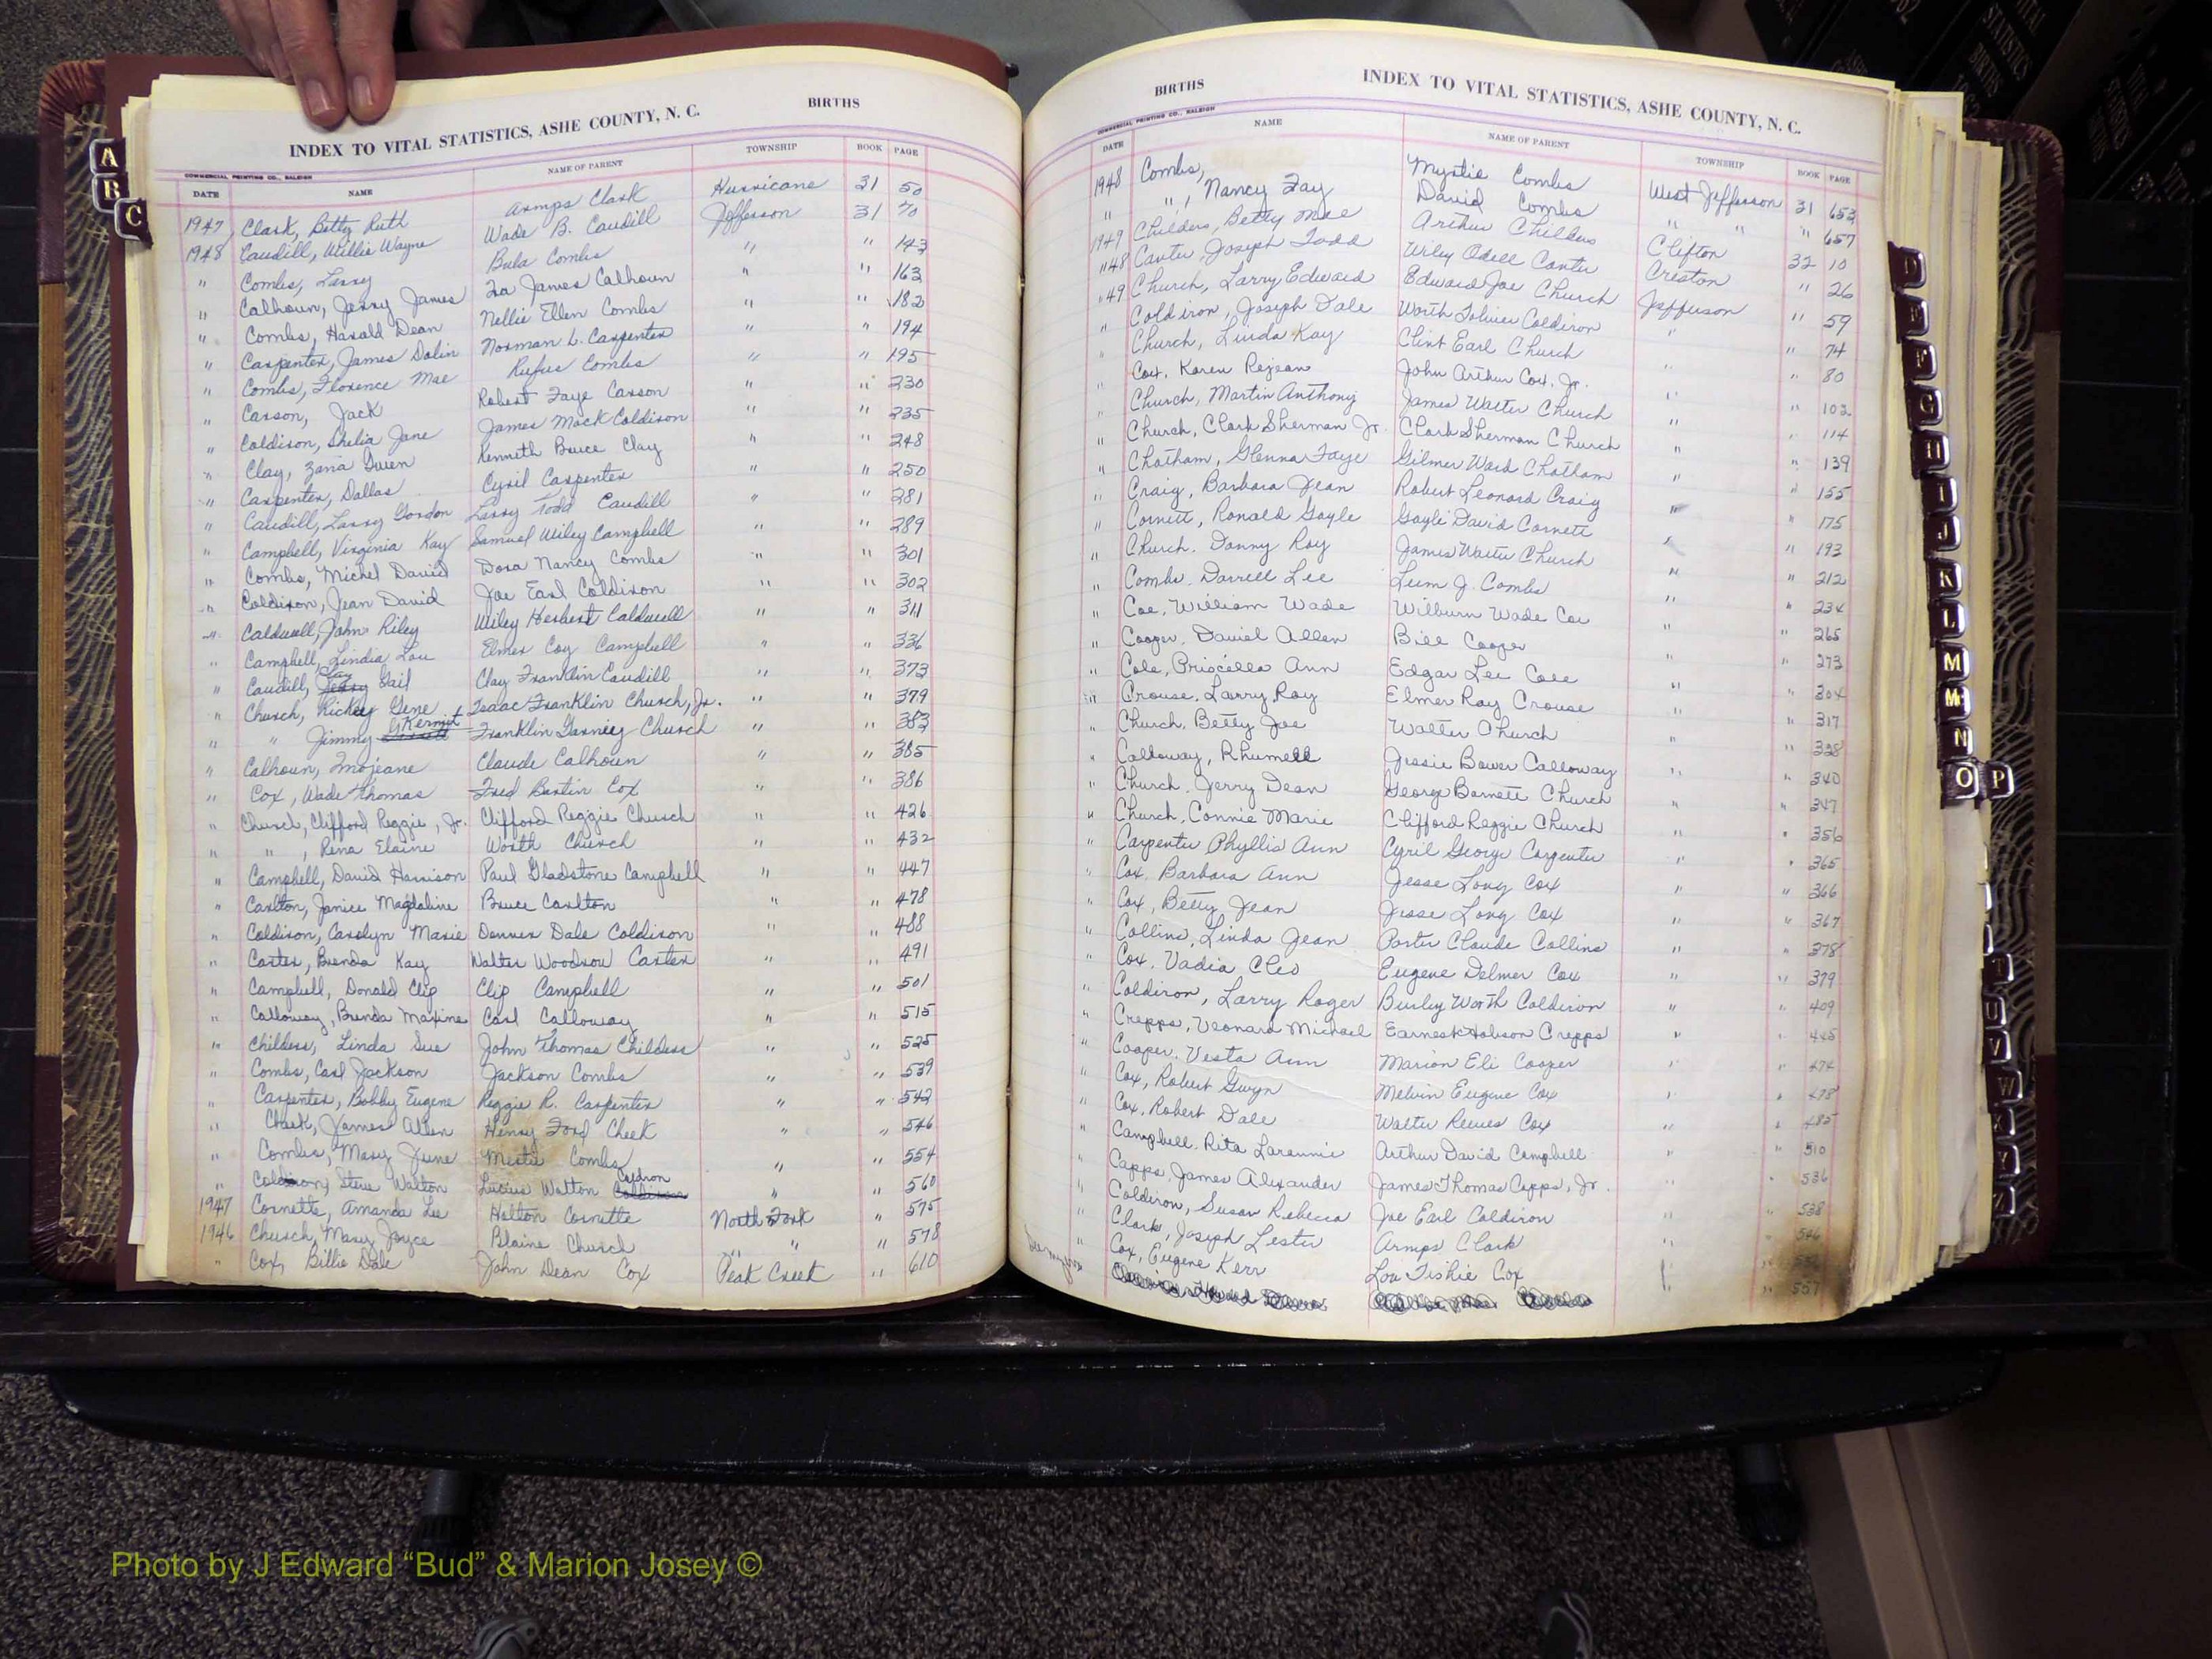 INDEX TO VITAL STATISTICS, ASHE COUNTY, N. C. BIRTHS
COMMERCIAL PRINTING CO., RALEIGH
DATE NAME NAME OF PARENT TOWNSHIP BOOK PAGE
1947 Clark, Betty Ruth Armps Clark Hurricane 31 50
1948 Caudill, Willie Wayne Wade B. Caudill Jefferson 31 70
" Combs, Larry Bula Combs " " 143
" Calhoun, Jerry James Ira James Calhoun " " 163
" Combs, Harald Dean Nellie Ellen Combs " " 182
" Carpenter, James Dolin Norman L. Carpenter " " 194
" Combs, Florence Mae Rufus Combs " " 195
" Carson, Jack Robert Faye Carson " " 230
" Coldiron, Shelia Jane James Mack Coldiron " " 235
" Clay, Zana Gwen Kenneth Bruce Clay " " 248
" Carpenter, Dallas Cyril Carpenter " " 250
" Caudill, Larry Gordon Larry Todd Caudill " 281
" Campbell, Virginia Kay Samuel Wiley Campbell " " 289
" Combs, Michel David Dora Nancy Combs " " 301
" Coldiron, Jean David Joe Earl Coldiron " " 302
" Caldwell, John Riley Wiley Herbert Caldwell " " 311
" Campbell, Lindia Lou Elmer Coy Campbell " " 336
" Caudill, Clay Gail Clay Franklin Caudill " " 373
" Church, Rickey Gene Isaac Franklin Church, Jr. " " 379
" " Jimmy Kermit Franklin Garniey Church " " 383
" Calhoun, Imojeane Claude Calhoun " " 385
" Cox, Wade Thomas Fred Bartin Cox " " 386
" Church, Clifford Reggie, Jr. Clifford Reggie Church " " 426
" " , Rena Elaine Worth Church " " 432
" Campbell, David Harrison Paul Gladstone Campbell " " 447
" Carlton, Janice Magdaline Bruce Carlton " " 478
" Coldiron, Carolyn Marie Donner Dale Coldiron " " 488
" Carter, Brenda Kay Walter Woodrow Carter " " 491
" Campbell, Donald Clip Clip Campbell " " 501
" Calloway, Brenda Maxine Carl Calloway " " 515
" Childers, Linda Sue John Thomas Childers " " 525
" Combs, Carl Jackson Jackson Combs " " 539
" Carpenter, Bobby Eugene Reggie R. Carpenter " " 542
" Cheek, James Allen Henry Ford Cheek " " 546
" Combs, Mary June Mistie Combs " " 554
" Coldiron, Steve Walton Lucius Walton Coldiron " " 560
1947 Cornette, Amanda Lee Halton Cornette North Fork " 575
1946 Church, Mary Joyce Blaine Church " " " 578
" Cox, Billie Dale John Dean Cox Peak Creek " 610
BIRTHS INDEX TO VITAL STATISTICS, ASHE COUNTY, N. C.
COMMERCIAL PRINTING CO., RALEIGH
DATE NAME NAME OF PARENT TOWNSHIP BOOK PAGE
1948 Combs, Mystie Combs West Jefferson 31 653
" " , Nancy Fay David Combs " " " 657
1949 Childers, Betty Mae Arthur Childers Clifton 32 10
"48 Canter, Joseph Todd Wiley Odell Canter Creston " 26
"49 Church, Larry Edward Edward Joe Church Jefferson " 59
" Coldiron, Joseph Dale Worth Coldiron " " 74
" Church, Linda Kay Clint Earl Church " " 80
" Cox, Karen Rejean John Arthur Cox, Jr. " " 102
" Church, Martin Anthony James Walter Church " " 114
" Church, Clark Sherman Jr. Clark Sherman Church " " 139
" Chatham, Glenna Faye Gilmer Ward Chatham " " 155
" Craig, Barbara Jean Robert Leonard Craig " " 175
" Cornett, Ronald Gayle Gayle David Cornett " " 193
" Church, Danny Roy James Walter Church " " 212
" Combs, Darrell Lee Leim J. Combs " " 234
" Coe, William Wade Wilburn Wade Coe " " 265
" Cooper, David Allen Bill Cooper " " 273
" Cole, Priscilla Ann Edgar Lee Cole " " 304
" Crouse, Larry Ray Elmer Ray Crouse " " 317
" Church, Betty Joe Walter Church " " 338
" Calloway, Rhumell Jessie Bower Calloway " " 340
" Church, Jerry Dean George Barnett Church " " 347
" Church, Connie Marie Clifford Reggie Church " " 356
" Carpenter Phyllis Ann Cyril George Carpenter " " 365
" Cox, Barbara Ann Jesse Long Cox " " 366
" Cox, Betty Jean Jesse Long Cox " " 367
" Collins, Linda Jean Porter Claude Collins " " 378
" Cox, Vadia Cleo Eugene Delmer Cox " " 379
" Coldiron, Larry Roger Burley Worth Coldiron " " 409
" Crepps, Veonard Michael Earnest Hobson Crepps " " 445
" Cooper, Vesta Ann Marion Eli Cooper " " 474
" Cox, Robert Gwyn Melvin Eugene Cox " " 478
" Cox, Robert Dale Walter Reeves Cox " " 485
" Campbell, Rita Arthur David Campbell " " 510
" Capps, James Alexander James Thomas Capps, Jr. " " 536
" Coldiron, Susan Rebecca Joe Earl Coldiron " 538
" Clark, Joseph Lester Armps Clark " 546
" Cox, Eugene Kerr Lou Tishie Cox "
" 557
A
B
C
D
E
F
G
H
I
J
K
L
M
M
N
O P
W
VITAL STATISTICS BIRTHS
Photo by J Edward “Bud” & Marion Josey ©